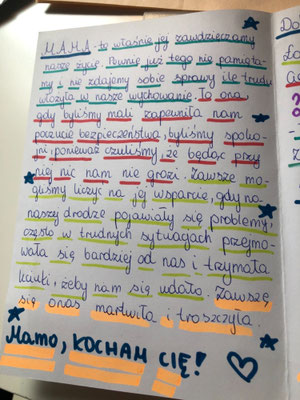 M.A.M.A - to właśnie jej zawdzięczamy
nasze życie. Pewnie już tego nie pamięta-
my i nie zdajemy sobie sprawy ile trudu
włożyła w nasze wychowanie. To ona,
gdy byliśmy mali zapewniła nam
poczucie bezpieczeństwa, byliśmy spokoj-
ni, ponieważ czuliśmy, że będąc przy
niej nic nam nie grozi. Zawsze mo-
gliśmy liczyć na jej wsparcie, gdy na
naszej drodze pojawiały się problemy,
często w trudnych sytuacjach przejmo-
wała się bardziej od nas i trzymała
kciuki, żeby nam się udało. Zawsze
się o nas martwiła i troszczyła.
Mamo, KOCHAM CIĘ!